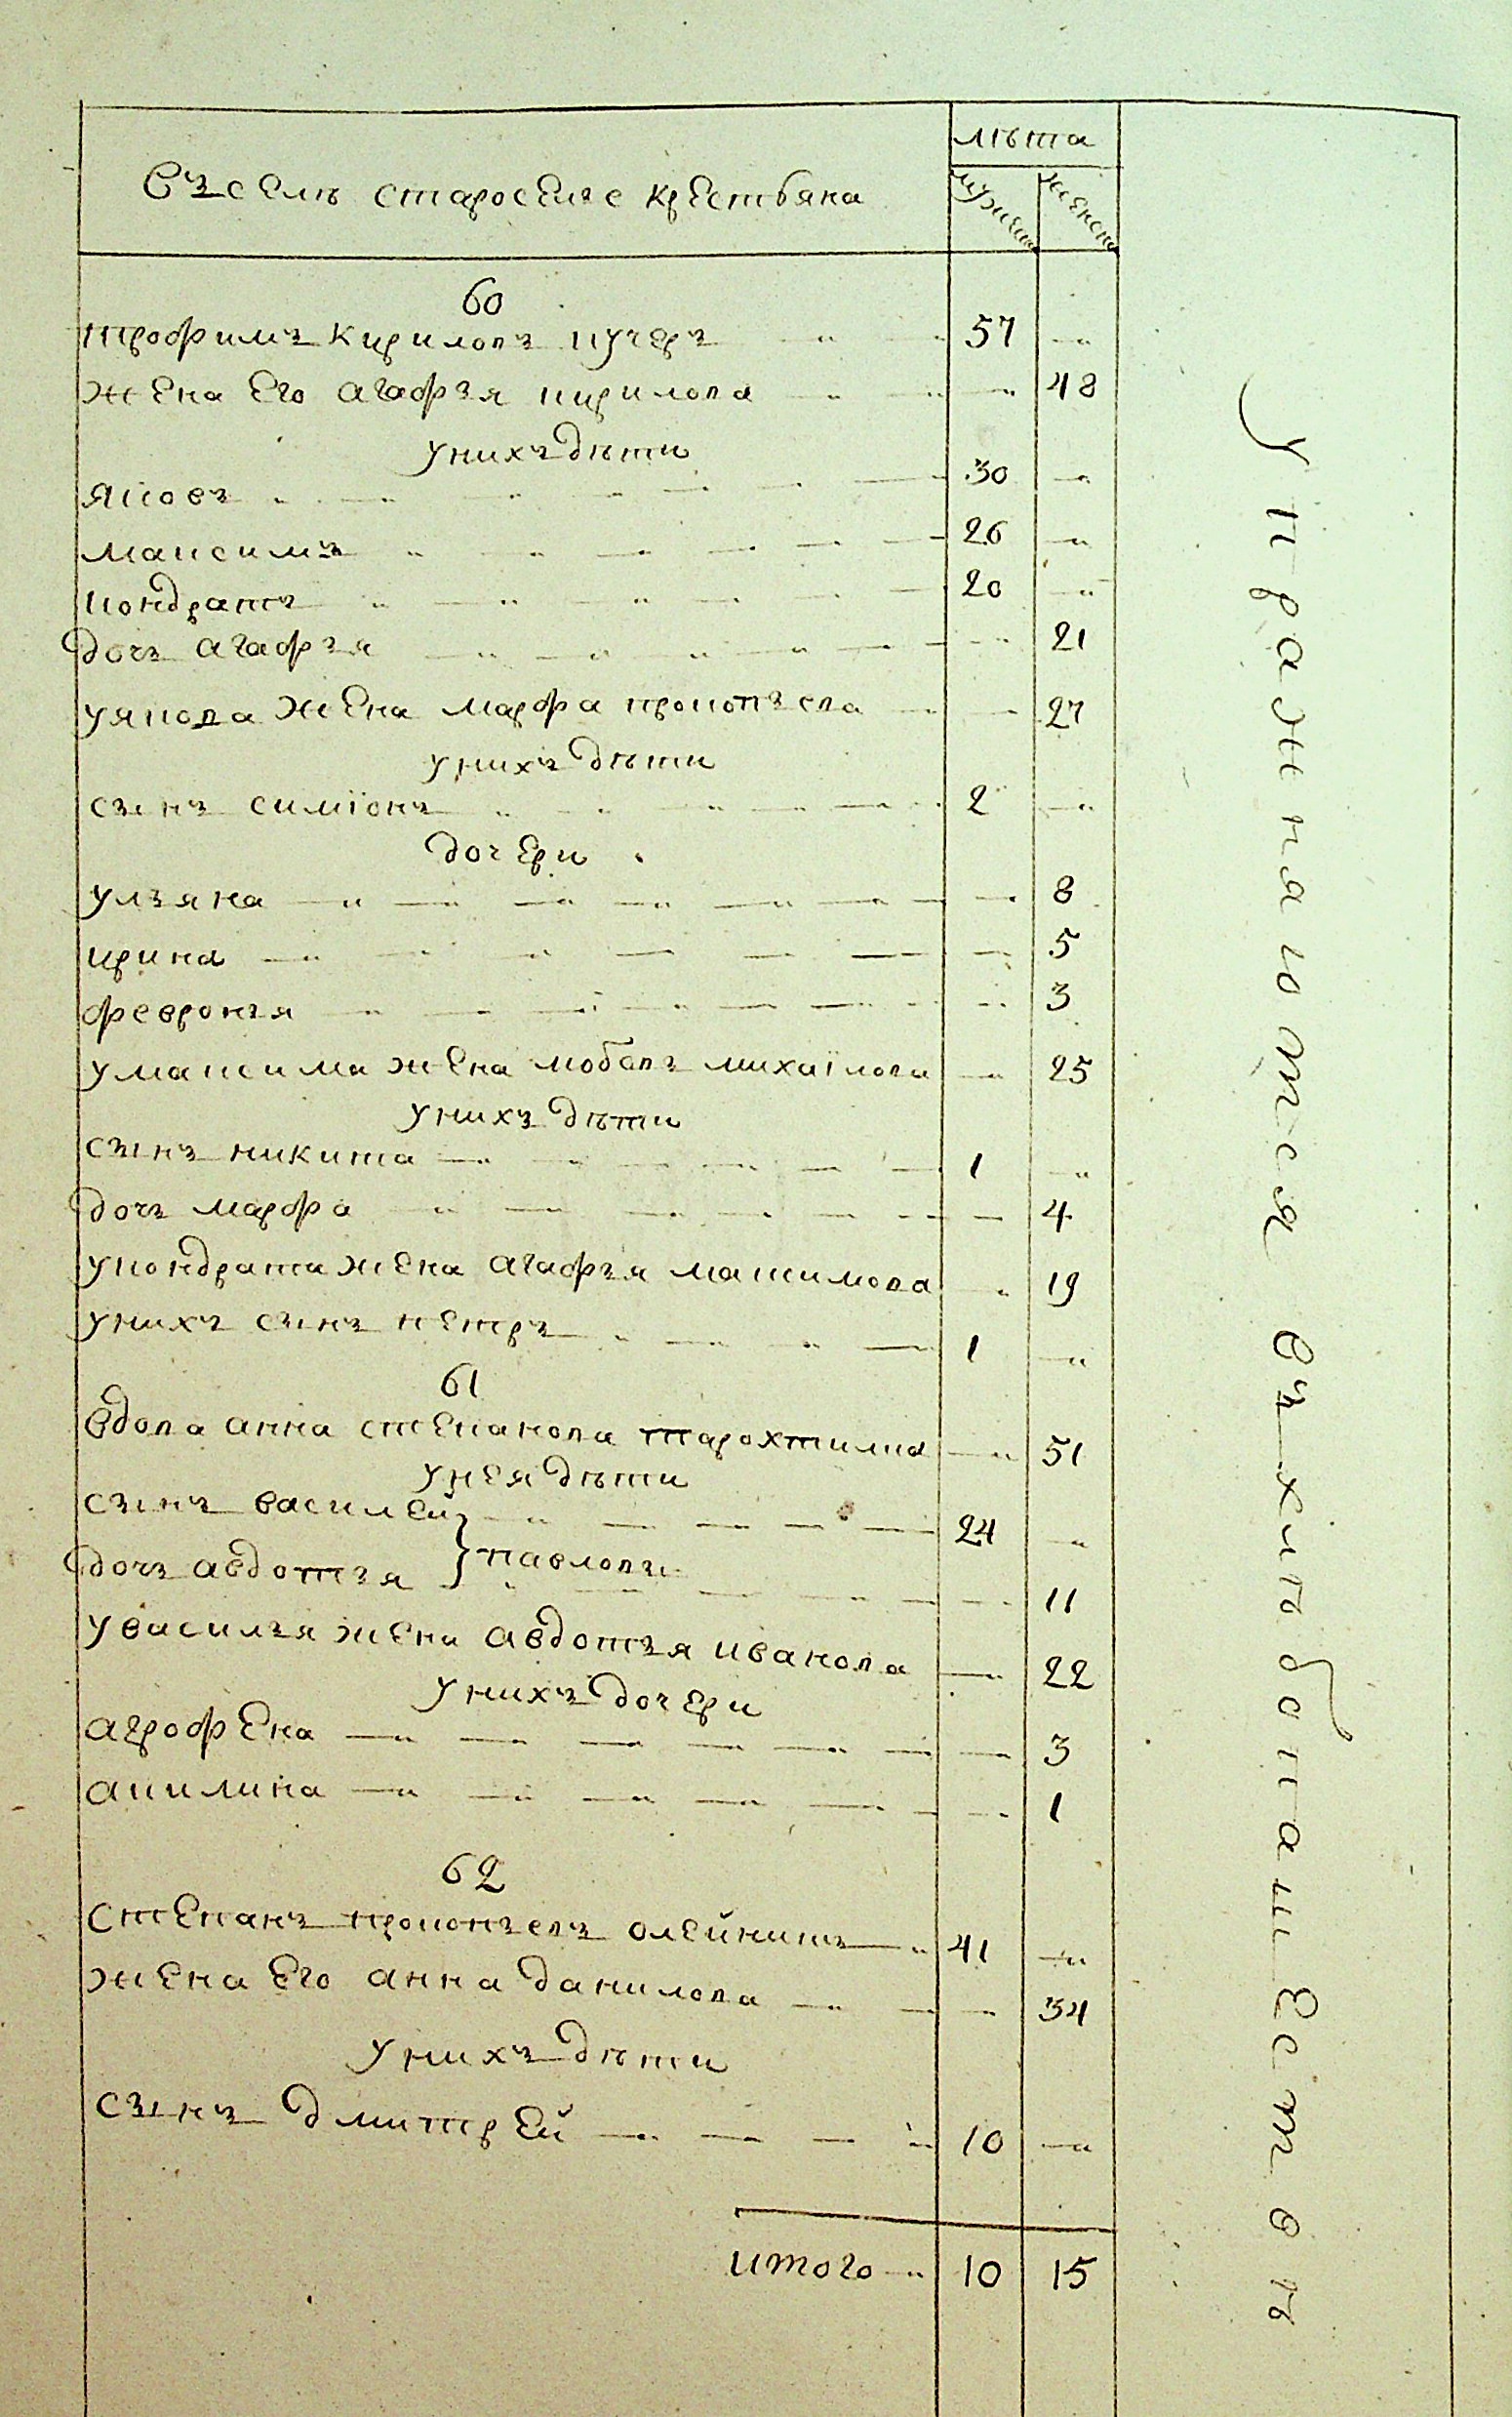 лѣта
Въ селѣ староселе крестьяна
мужеска
женска
60
трофимъ кириловъ кучеръ 57
жена его агафъя кирилова 48
у нихъ дѣти
яковъ 30
максимъ 26
кондратъ 20
дочъ агафъя 21
у якова жена марфа прокопъева 27
у нихъ дѣти
сынъ симїонъ 2
дочери
улъяна 8
ирина 5
февронъя 3
у максима жена любовъ михаїлова 25
у нихъ дѣти
сынъ никита 1
дочъ марфа 4
у кондрата жена агафъя максимова 19
у нихъ сынъ петръ 1
61
вдова анна степанова 51
у нея дѣти
сынъ василей 24
павловы
дочъ авдотъя 11
у василъя жена авдотъя иванова 22
у нихъ дочери
агрофена 3
акилина 1
62
степанъ прокопъевъ олейникъ 41
жена его анна данилова 34
у нихъ дѣти
сынъ дмитрей 10
итого 10 15
Упражняются въ хлѣбопашествѣ